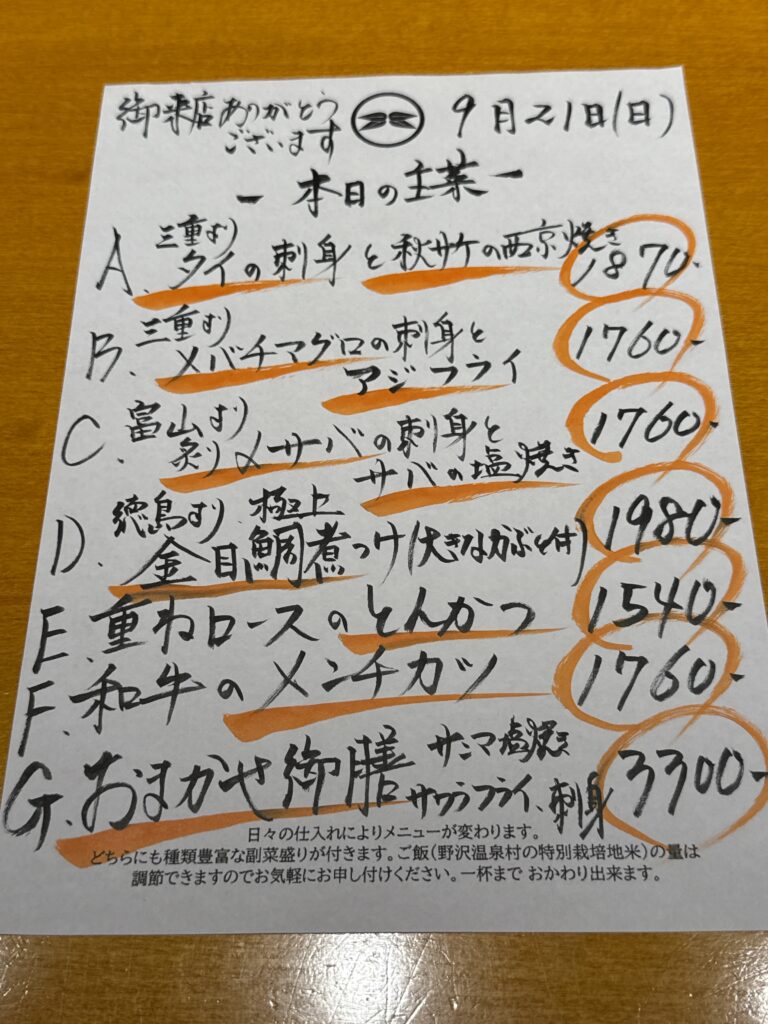 御来店ありがとう
ございます
9月21日(日)
ー本日の主菜ー
A. 三重より
タイの刺身と秋サケの西京焼き 1870-
B. 三重より
メバチマグロの刺身と
アジフライ 1760-
C. 富山より
炙りメサバの刺身と
サバの塩焼き 1760-
D. 徳島より 極上
金目鯛煮つけ(大きなかぶと付) 1980-
E. 重ねロースのとんかつ 1540-
F. 和牛のメンチカツ 1760-
G. おまかせ御膳 サンマ塩焼き
サワラフライ、刺身 3300-
日々の仕入れによりメニューが変わります。
どちらにも種類豊富な副菜盛りが付きます。ご飯(野沢温泉村の特別栽培地米)の量は
調節できますのでお気軽にお申し付けください。一杯まで おかわり出来ます。